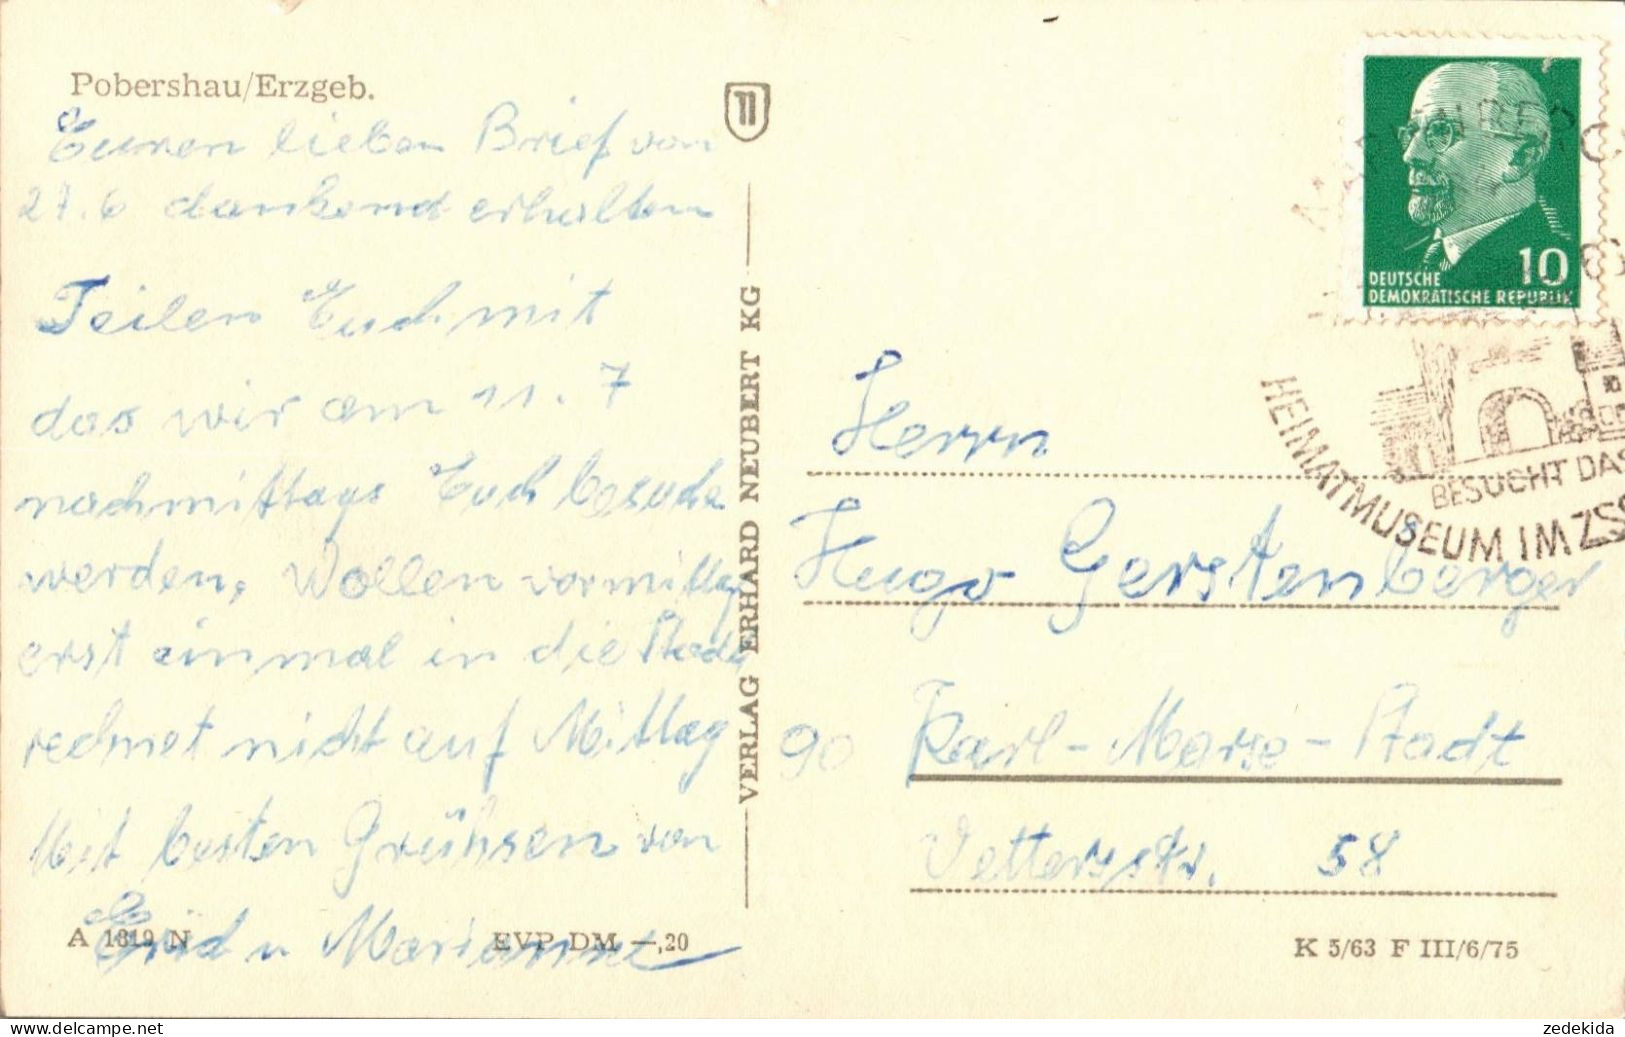 Pobershau/Erzgeb.
Euren lieben Brief von
27.6 dankend erhalten
Teilen Euch mit
das wir am 11.7
nachmittags Euch besuche
werden, Wollen vormittag
erst einmal in die Stadt
rechnet nicht auf Mittag
Mit besten Grühsen von
u Marianne
A 1819 N
EVP DM —,20
VERLAG ERHARD NEUBERT KG
DEUTSCHE
DEMOKRATISCHE REPUBLIK
10
BESUCHT DAS
HEIMATMUSEUM IM ZS
Herrn
Hugo Gerstenberger
90 Karl-Marx-Stadt
Vettersstr. 58
K 5/63 F III/6/75
zedekida